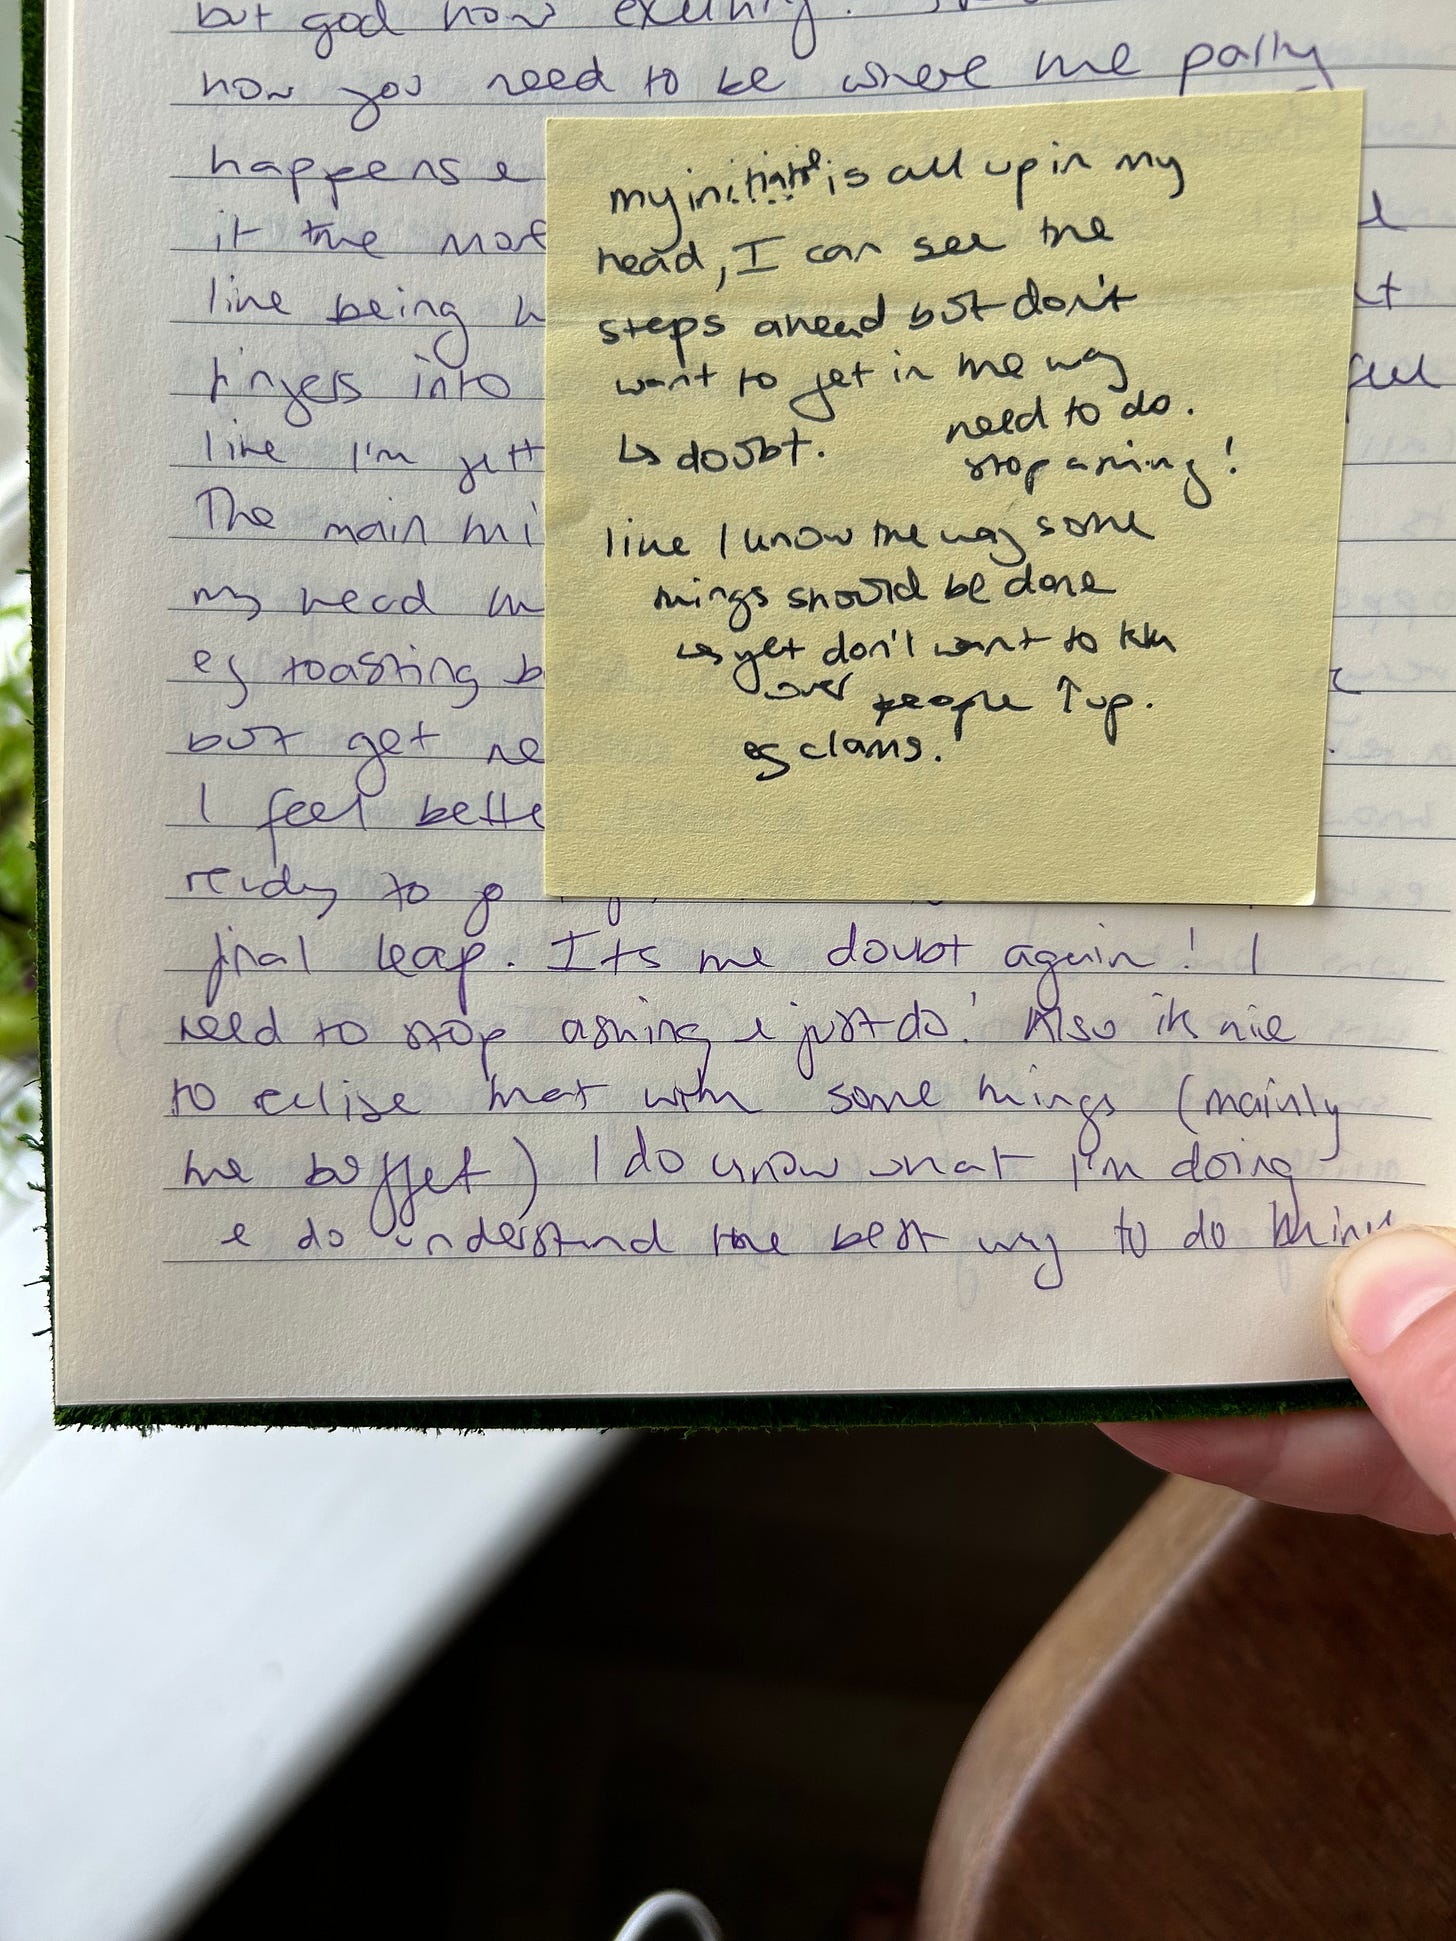 but god how exciting!
how you need to be where the party
happens &
it the
line being
fingers into
like I'm gett
The main mi
my head
eg toasting b
but get ne
I feel bette
ready to go
final leap. Its the doubt again! I
need to stop asking & just do! Also its nice
to relise that with some things (mainly
the buffet) I do know what I'm doing
& do understand the best way to do things
my initiative is all up in my
head, I can see the
steps ahead but don't
want to get in the way
↳ doubt. need to do.
stop asking!
like I know the way some
things should be done
↳ yet don't want to
over people ↑ up.
eg clams.